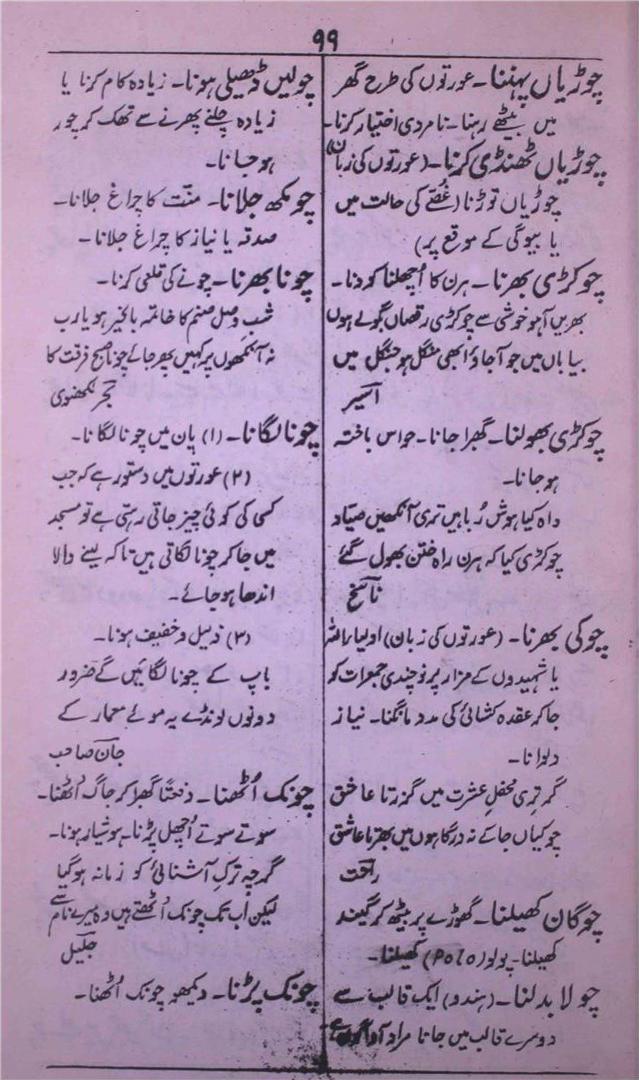 ۹۹
چوڑیاں پہننا۔ عورتوں کی طرح گھر
میں بیٹھے رہنا۔ نامردی اختیار کرنا۔
چوڑیاں ٹھنڈی کرنا۔ (عورتوں کی زبان)
چوڑیاں توڑنا (غصّے کی حالت میں
یا بیوگی کے موقع پر)
چوکڑی بھرنا۔ ہرن کا اُچھلنا کودنا۔
بھریں آہو خوشی سے چوکڑی رقصاں بگولے ہوں
بیاباں میں جو آجاؤ ابھی منگل ہو جنگل میں
اسیر
چوکڑی بھولنا۔ گھبرا جانا۔ حواس باختہ
ہو جانا۔
واہ کیا ہوش رُبا ہیں تری آنکھیں صیاد
چوکڑی کیا کہ ہرن راہ ختن بھول گئے
ناسخ
چوکی بھرنا۔ (عورتوں کی زبان) اولیاء اللہ
یا شہیدوں کے مزار پر نوچندی جمعرات کو
جا کر عقدہ کشائی کی مدد مانگنا۔ نیاز
دلوانا۔
گر تری محفلِ عشرت میں گزرتا عاشق
چوکیاں جا کے نہ درگاہوں میں بھرتا عاشق
راحت
چوگان کھیلنا۔ گھوڑے پر بیٹھ کر گیند
کھیلنا۔ پولو (Polo) کھیلنا۔
چولا بدلنا۔ (ہندو) ایک قالب سے
دوسرے قالب میں جانا مراد
چولیں ڈھیلی ہونا۔ زیادہ کام کرنا یا
زیادہ چلنے پھرنے سے تھک کر چور
ہو جانا۔
چومکھ جلانا۔ منّت کا چراغ جلانا۔
صدقہ یا نیاز کا چراغ جلانا۔
چونا بھرنا۔ چونے کی قلعی کرنا۔
شبِ وصلِ صنم کا خاتمہ بالخیر ہو یارب
نہ آنکھوں پر کہیں پھر جائے چونا صبح فرقت کا
لکھنوی
چونا لگانا۔ (۱) پان میں چونا لگانا۔
(۲) عورتوں میں دستور ہے کہ جب
کسی کی کوئی چیز جاتی رہتی ہے تو مسجد
میں جا کر چونا لگاتی ہیں تاکہ لینے والا
اندھا ہو جائے۔
(۳) ذلیل و خفیف ہونا۔
باپ کے چونا لگائیں گے ضرور
دونوں لونڈے یہ موئے معمار کے
جان صاحب
چونک اُٹھنا۔ دفعتاً گھبرا کر جاگ اُٹھنا۔
سوتے سوتے اُچھل پڑنا۔ ہوشیار ہونا۔
گرچہ ترکِ آشنائی کو زمانہ ہو گیا
لیکن اب تک چونک اُٹھتے ہیں وہ میرے نام سے
جلیل
چونک پڑنا۔ دیکھو چونک اُٹھنا۔